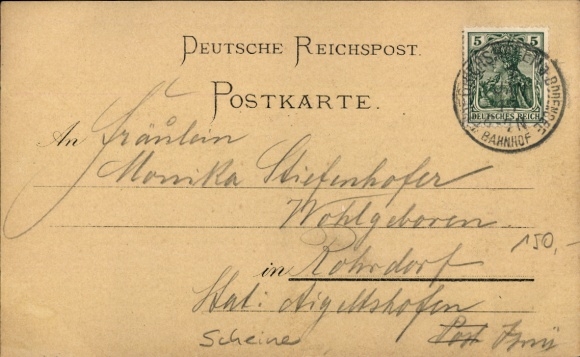 DEUTSCHE REICHSPOST.
POSTKARTE.
5 5
DEUTSCHES REICH
FRIEDRICHSHAFEN BODENSEE
BAHNHOF
An Fräulein
Monika Stiefenhofer
Wohlgeboren
150,-
in Rohrdorf
Stat: Aigeltshofen
Scheine
Post Isny